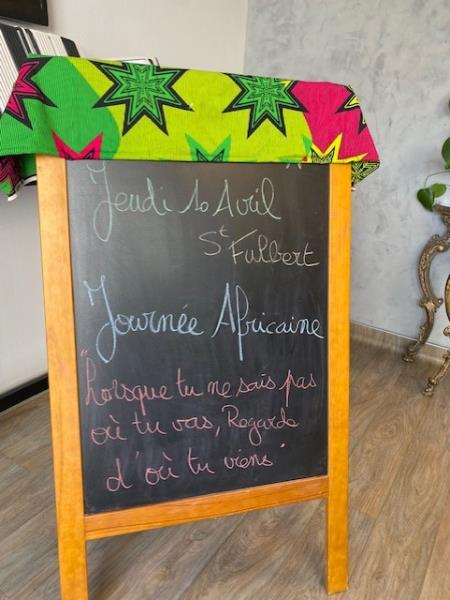 Jeudi 10 Avril
St Fulbert
"Journée Africaine
"Lorsque tu ne sais pas
où tu vas, Regarde
d'où tu viens"